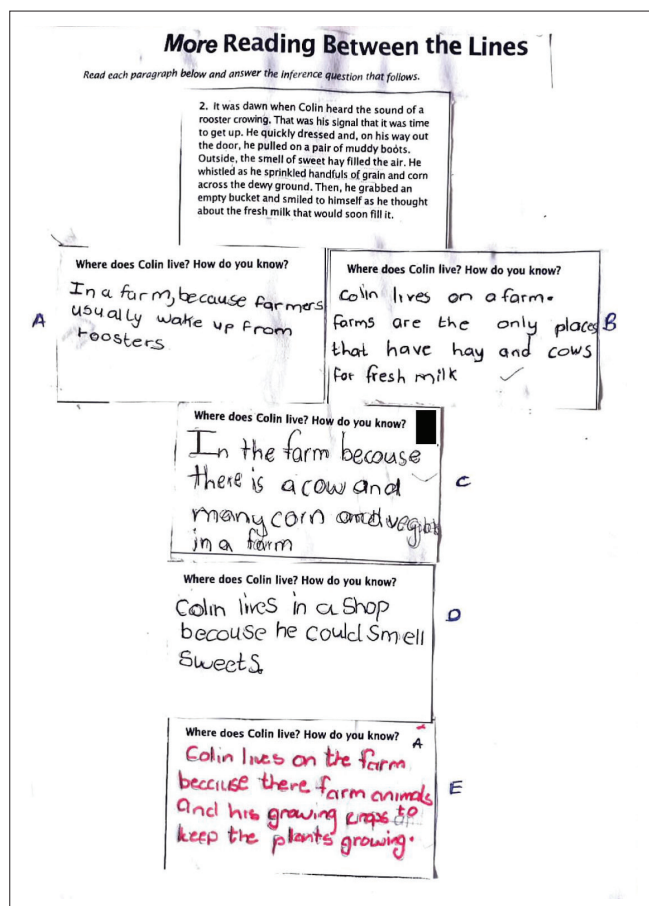 More Reading Between the Lines
Read each paragraph below and answer the inference question that follows.
2. It was dawn when Colin heard the sound of a
rooster crowing. That was his signal that it was time
to get up. He quickly dressed and, on his way out
the door, he pulled on a pair of muddy boots.
Outside, the smell of sweet hay filled the air. He
whistled as he sprinkled handfuls of grain and corn
across the dewy ground. Then, he grabbed an
empty bucket and smiled to himself as he thought
about the fresh milk that would soon fill it.
Where does Colin live? How do you know?
In a farm, because farmers
usually wake up from
roosters
A
Where does Colin live? How do you know?
Colin lives on a farm.
farms are the only places
that have hay and cows
for fresh milk
B
Where does Colin live? How do you know?
In the farm becouse
there is a cow and
many corn and
in a farm
C
Where does Colin live? How do you know?
Colin lives in a shop
becouse he could smell
sweets
D
Where does Colin live? How do you know?
A
Colin lives on the farm
because there farm animals
and his growing crops to
keep the plants growing.
E